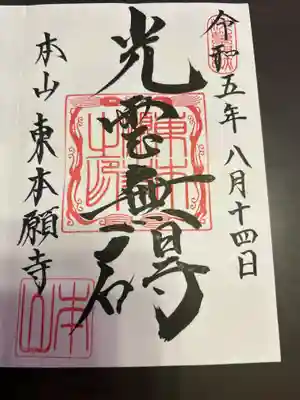 令和五年八月十四日
光雲無碍
本山東本願寺
本山